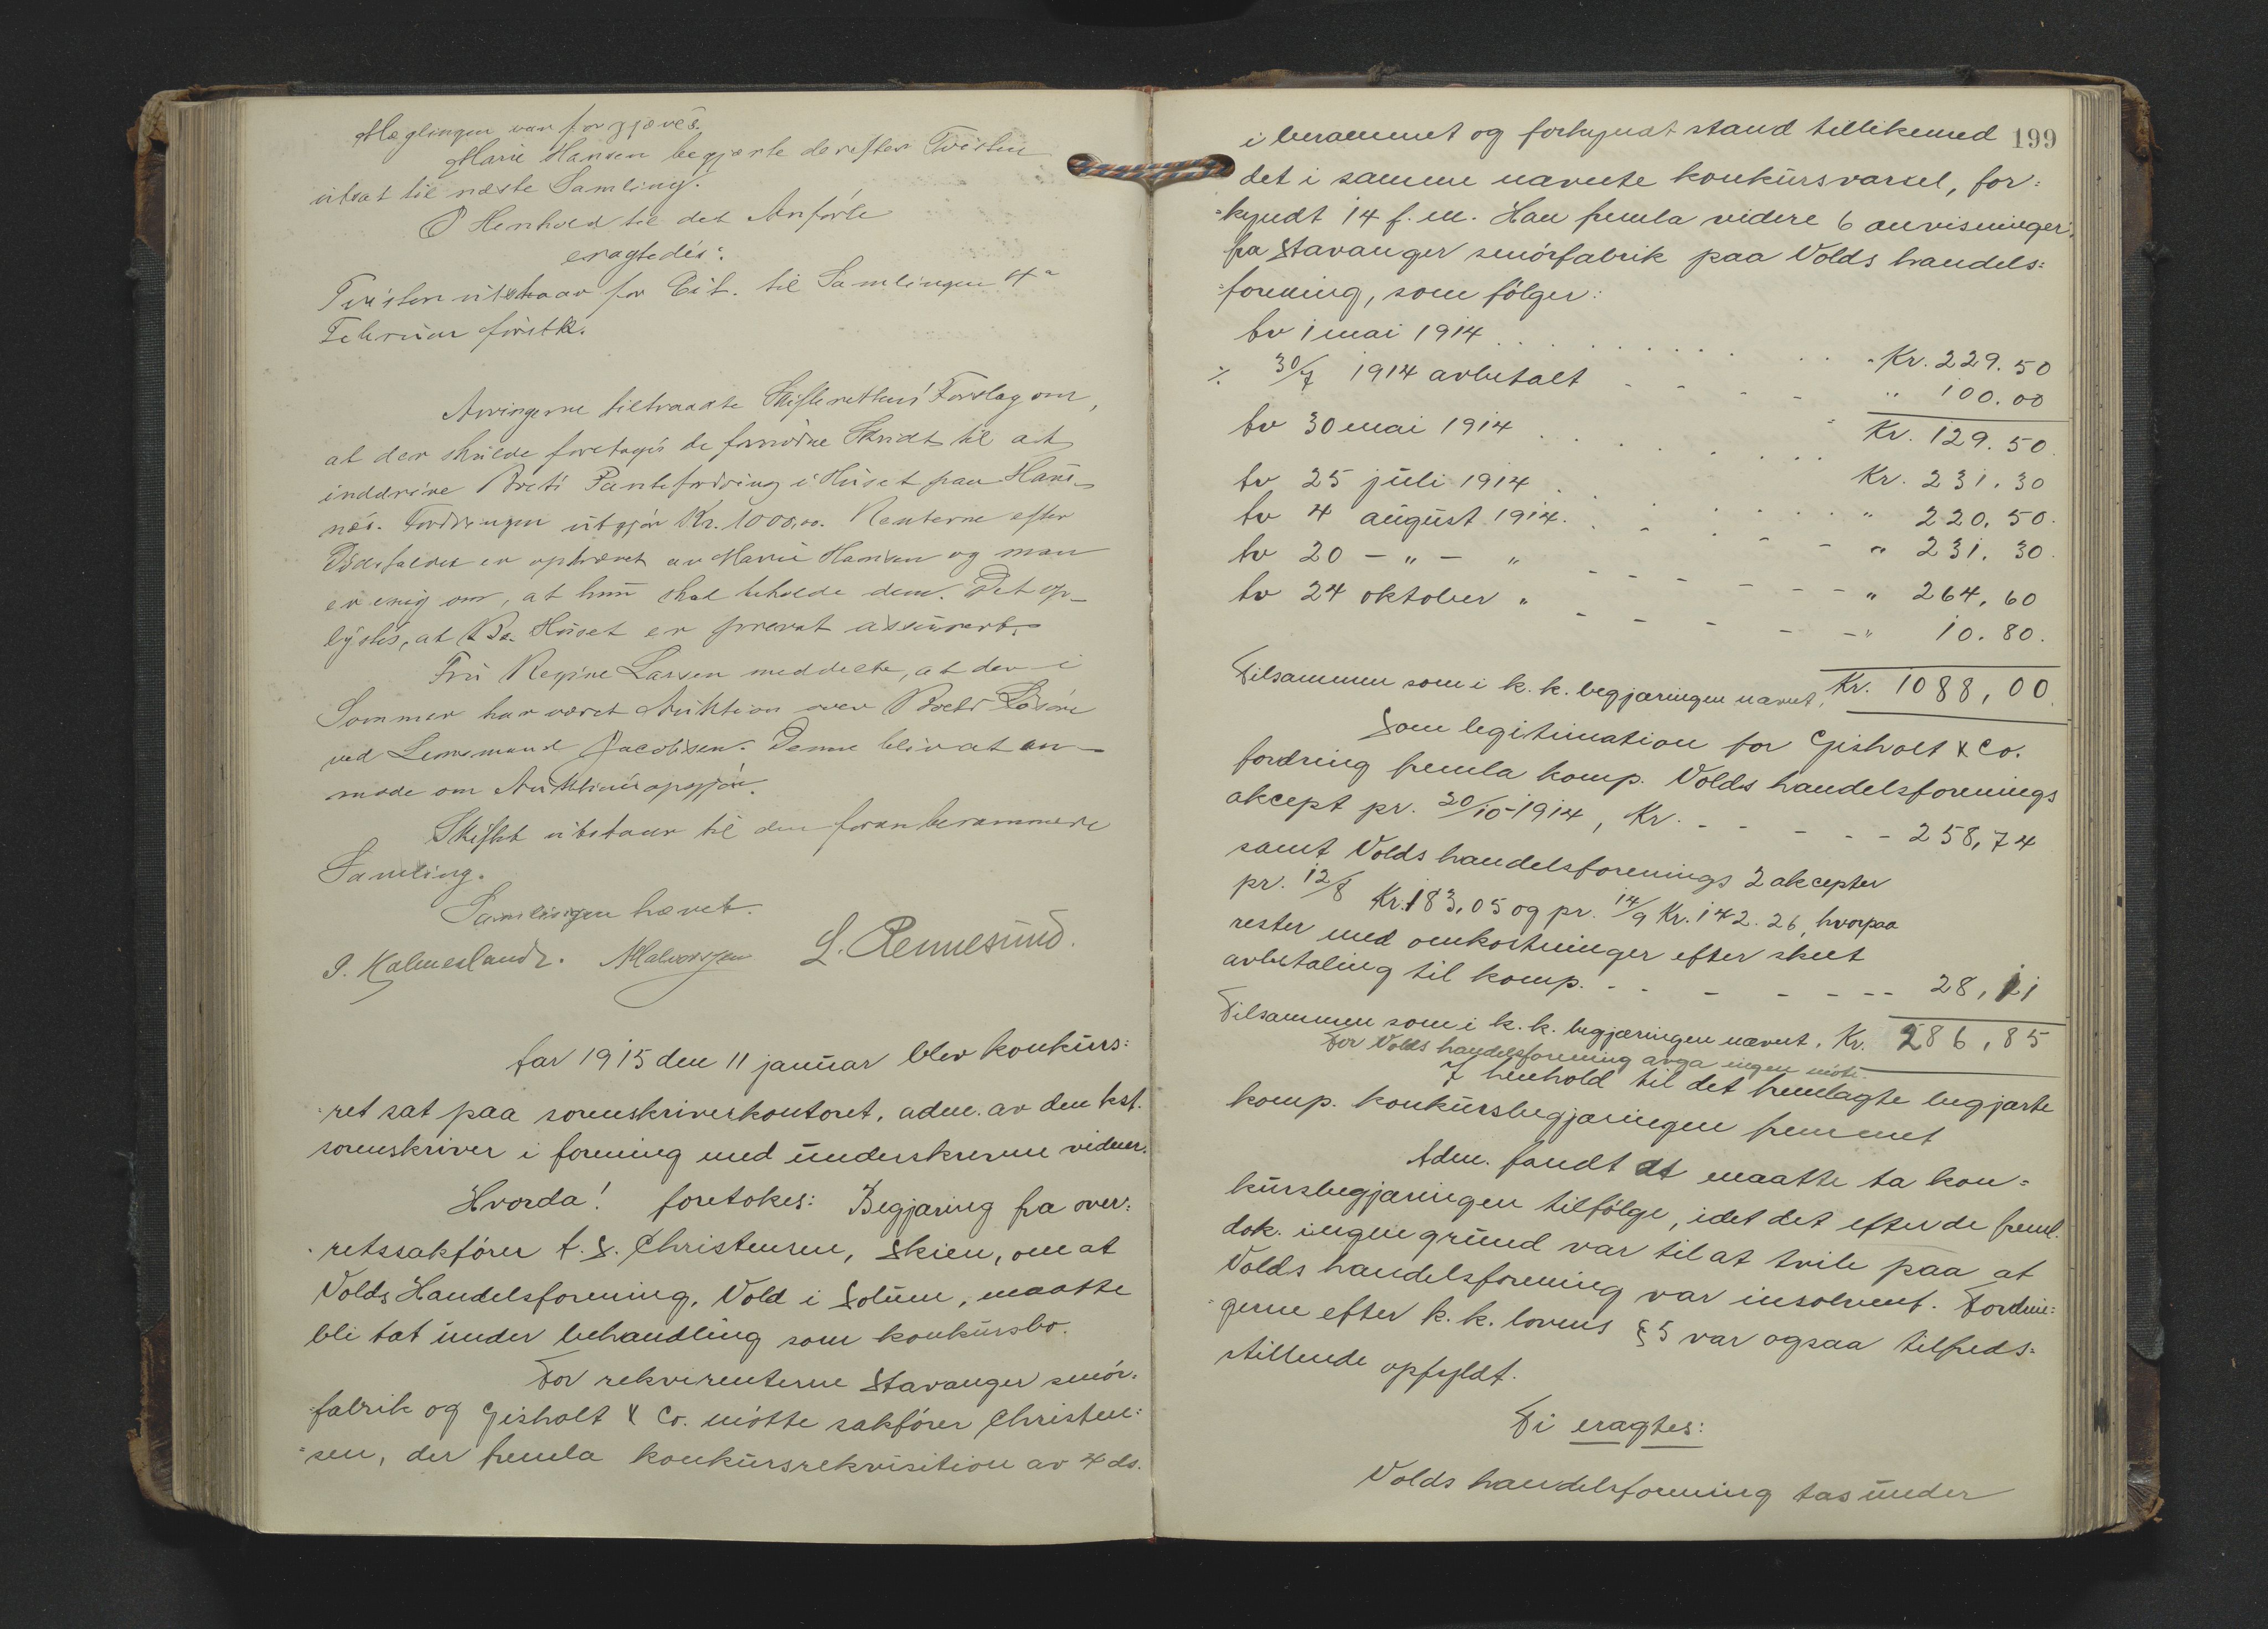 Mæglingen var forgjæves.
Marie Hansen begjærte derefter Tvisten
utsat til næste Samling.
I Henhold til det Anførte
eragtedes:
Tvisten utstaar for Bit. til Samlingen 4de
Februar førstk.
Arvingerne tiltraadte Skifterettens Forslag om,
at der skulde foretages de fornødne Skridt til at
inddrive Boets Pantefordring i Huset paa Hans-
næs. Fordringen utgjør Kr. 1000,00. Renterne efter
Dødsfaldet er ophævet av Marie Hansen og man
er enig om, at hun skal beholde dem. Det op-
lystes, at Huset er privat assurert.
Fru Regine Larsen meddelte, at der i
Sommer har været Auktion over Boets Løsøre
ved Lensmand Jacobsen. Denne blir at an-
mode om Auktionsopgjør.
Skiftet utstaar til den foran berammede
Samling.
Samlingen hævet.
P. Kalmeslandr. AHalvorsen L. Rennesund.
Aar 1915 den 11 januar blev konkurs:
ret sat paa sorenskriverkontoret, adm. av den kst.
sorenskriver i forening med underskrevne vidner.
Hvorda! foretokes: Begjæring fra over:
retssakfører t. S. Christensen, Skien, om at
Volds Handelsforening, Vold i Solum, maatte
bli tat under behandling som konkursbo.
For rekvirenterne Stavanger smør:
fabrik og Gisholt & Co. møtte sakfører Christen:
sen, der fremla konkursrekvisition av 4 ds.
199
i berammet og forkyndt stand tillikemed
det i samme nævnte konkursvarsel, for:
kyndt 14 f. m. Han fremla videre 6 anvisninger
fra Stavanger smørfabrik paa Volds handels:
forening, som følger:
av 1 mai 1914 . . . . . Kr. 229.50
÷ 30/7 1914 avbetalt - - - „ 100.00
Kr. 129.50
av 30 mai 1914 . . . . . Kr. 231.30
av 25 juli 1914 . . . . . „ 220.50.
av 4 august 1914. - - - „ 231.30.
av 20 - „ - „ - - - „ 264,60
av 24 oktober „ - - - „ 10.80.
Tilsammen som i k. k. begjæringen nævnt, Kr. 1088,00.
Som legitimation for Gisholt & Co.
fordring fremla komp. Volds handelsforenings
akcept pr. 20/10-1914, Kr. - - - - 258,74
samt Volds handelsforenings 2 akcepter
pr. 12/8 Kr. 183,05 og pr. 14/9 Kr. 142.26, hvorpaa
rester med omkostninger efter skeet
avbetaling til komp. - - - - 28,11
Tilsammen som i k. k. begjæringen nævnt, Kr. 286,85
For Volds handelsforening avga ingen møte.
I henhold til det fremlagte begjærte
komp. konkursbegjæringen fremmet
Adm. fandt at maatte ta kon:
kursbegjæringen tilfølge, idet det efter de freml.
dok. ingen grund var til at tvile paa at
Volds handelsforening var insolvent. Fordrin:
gerne efter k. k. lovens § 5 var ogsaa tilfreds:
stillende opfyldt.
Ti eragtes:
Volds handelsforening tas under